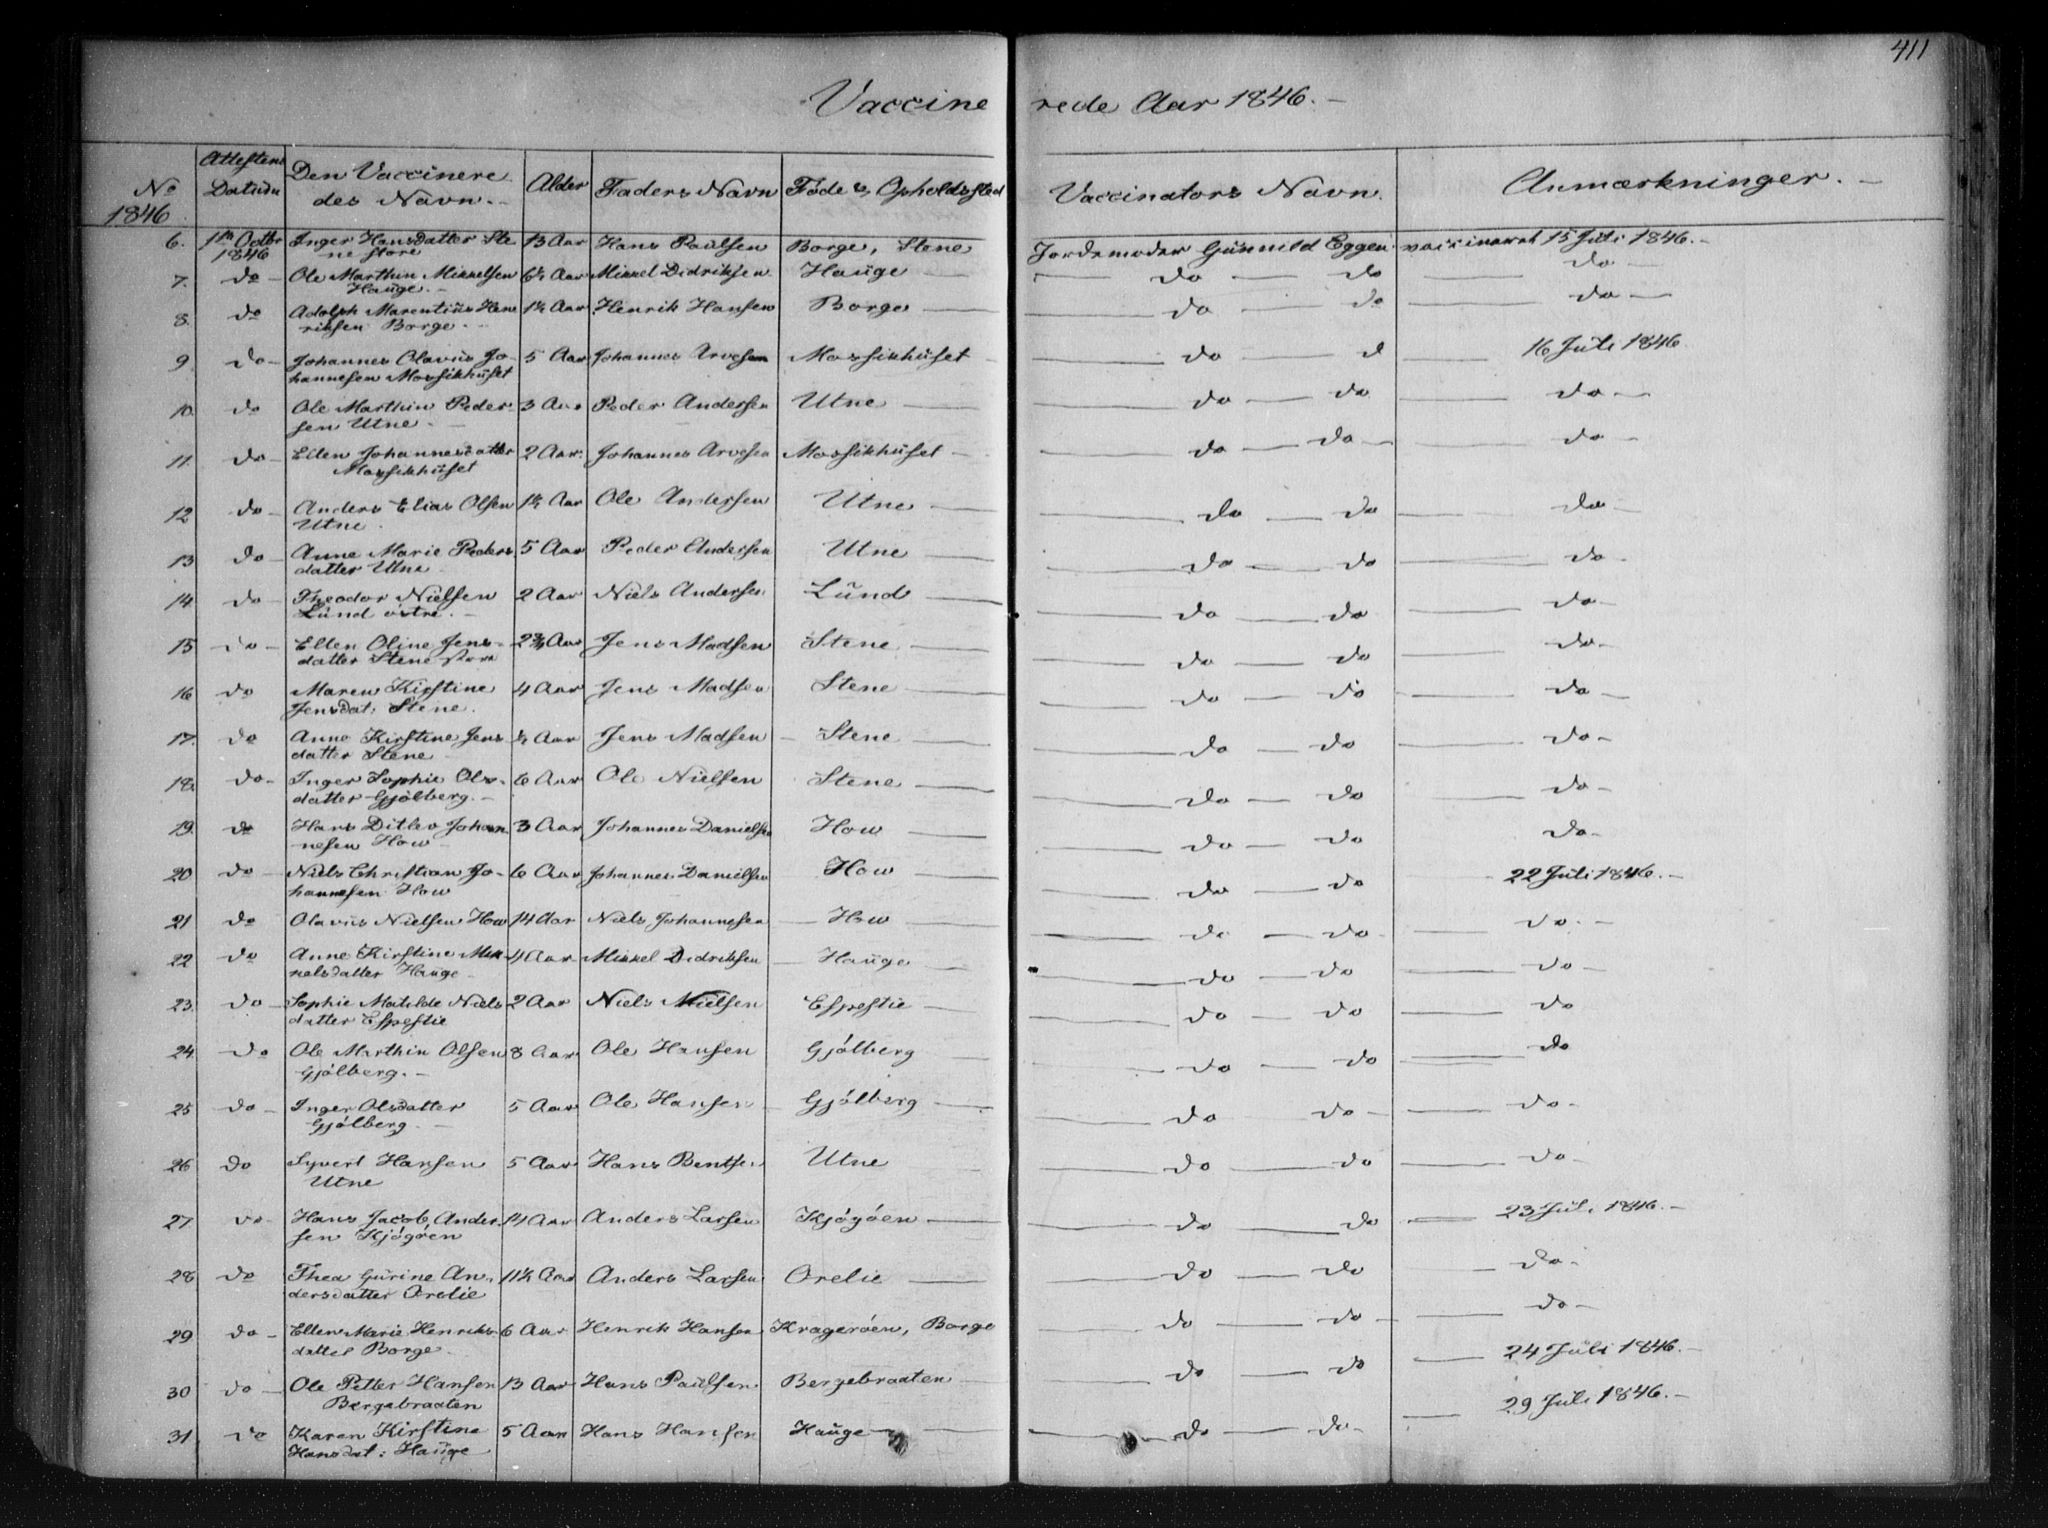 411
Vaccinerede Aar 1846.
No 1846 | Attestens Datum | Den Vaccineredes Navn. | Alder | Faders Navn | Føde &, Opholdssted | Vaccinators Navn. | Anmærkninger.
6. | 1ste Octbr 1846 | Inger Hansdatter Stene store | 13 Aar | Hans Paulsen | Borge, Stene | Jordemoder Gunnild Eggen | vaccineret 15 Juli 1846.
7. | do | Ole Marthin Mikkelsen Hauge. | 6½ Aar | Mikkel Didriksen | Hauge | do do | do
8. | do | Adolph Marentius Henriksen Borge. | 1½ Aar | Henrik Hansen | Borge | do do | do
9 | do | Johannes Olavus Johannesen Mossikhuset | 5 Aar | Johannes Arvesen | Mossikhuset | do d | 16 Juli 1846.
10. | do | Ole Marthin Pedersen Utne | 3 Aar | Peder Andersen | Utne | do do | do
11. | do | Ellen Johannesdatter Mossikhuset | 2 Aar. | Johannes Arvesen | Mossikhuset | do do | do
12 | do | Anders Elias Olsen Utne. | 1½ Aar | Ole Andersen | Utne | do do | do
13 | do | Anne Marie Pedersdatter Utne | 5 Aar | Peder Andersen | Utne | do do | do
14 | do | Theodor Nielsen Lund østre. | 2 Aar | Niels Andersen | Lund | do do | do
15 | do | Ellen Oline Jensdatter Stene store | 2¾ Aar | Jens Madsen | Stene | do do | do
16 | do | Maren Kirstine Jensdat: Stene. | 4 Aar | Jens Madsen | Stene | do do | do
17. | do | Anne Kirstine Jensdatter Stene | ½ Aar | Jens Madsen | Stene | do do | do
18. | do | Inger Sophie Olsdatter Gjølberg. | 6 Aar | Ole Nielsen | Stene | do do | do
19. | do | Hans Ditlev Johannesen How | 3 Aar | Johannes Danielsen | How | do do | do
20 | do | Niels Christian Johannesen How | 6 Aar | Johannes Danielsen | How | do do | 22 Juli 1846.
21 | do | Olavus Nielsen How | 14 Aar | Niels Johannesen | How | do do | do.
22 | do | Anne Kirstine Mikkelsdatter Hauge | 4 Aar | Mikkel Didriksen | Hauge | do do | do
23. | do | Sophie Matilde Nielsdatter Espestie | 2 Aar | Niels Nielsen | Espestie | do do | do
24. | do | Ole Marthin Olsen Gjølberg. | 8 Aar | Ole Hansen | Gjølberg | do do | do
25 | do | Inger Olsdatter Gjølberg. | 5 Aar | Ole Hansen | Gjølberg | do do | do
26 | do | Syvert Hansen Utne | 5 Aar | Hans Bentsen | Utne | do do | do
27 | do | Hans Jacob Andersen Kjøgøen | 14 Aar | Anders Larsen | Kjøgøen | do do | 23 Juli 1846.
28 | do | Thea Gurine Andersdatter Orelie | 11½ Aar | Anders Larsen | Orelie | do do | do
29 | do | Ellen Marie Henriksdatter Borge | 6 Aar | Henrik Hansen | Kragerøen, Borge | do do | do
30 | do | Ole Petter Hansen Bergebraaten | 13 Aar | Hans Paulsen | Bergebraaten | do do | 24 Juli 1846.
31 | do | Karen Kirstine Hansdat: Hauge | 5 Aar | Hans Hansen | Hauge | do do | 29 Juli 1846.